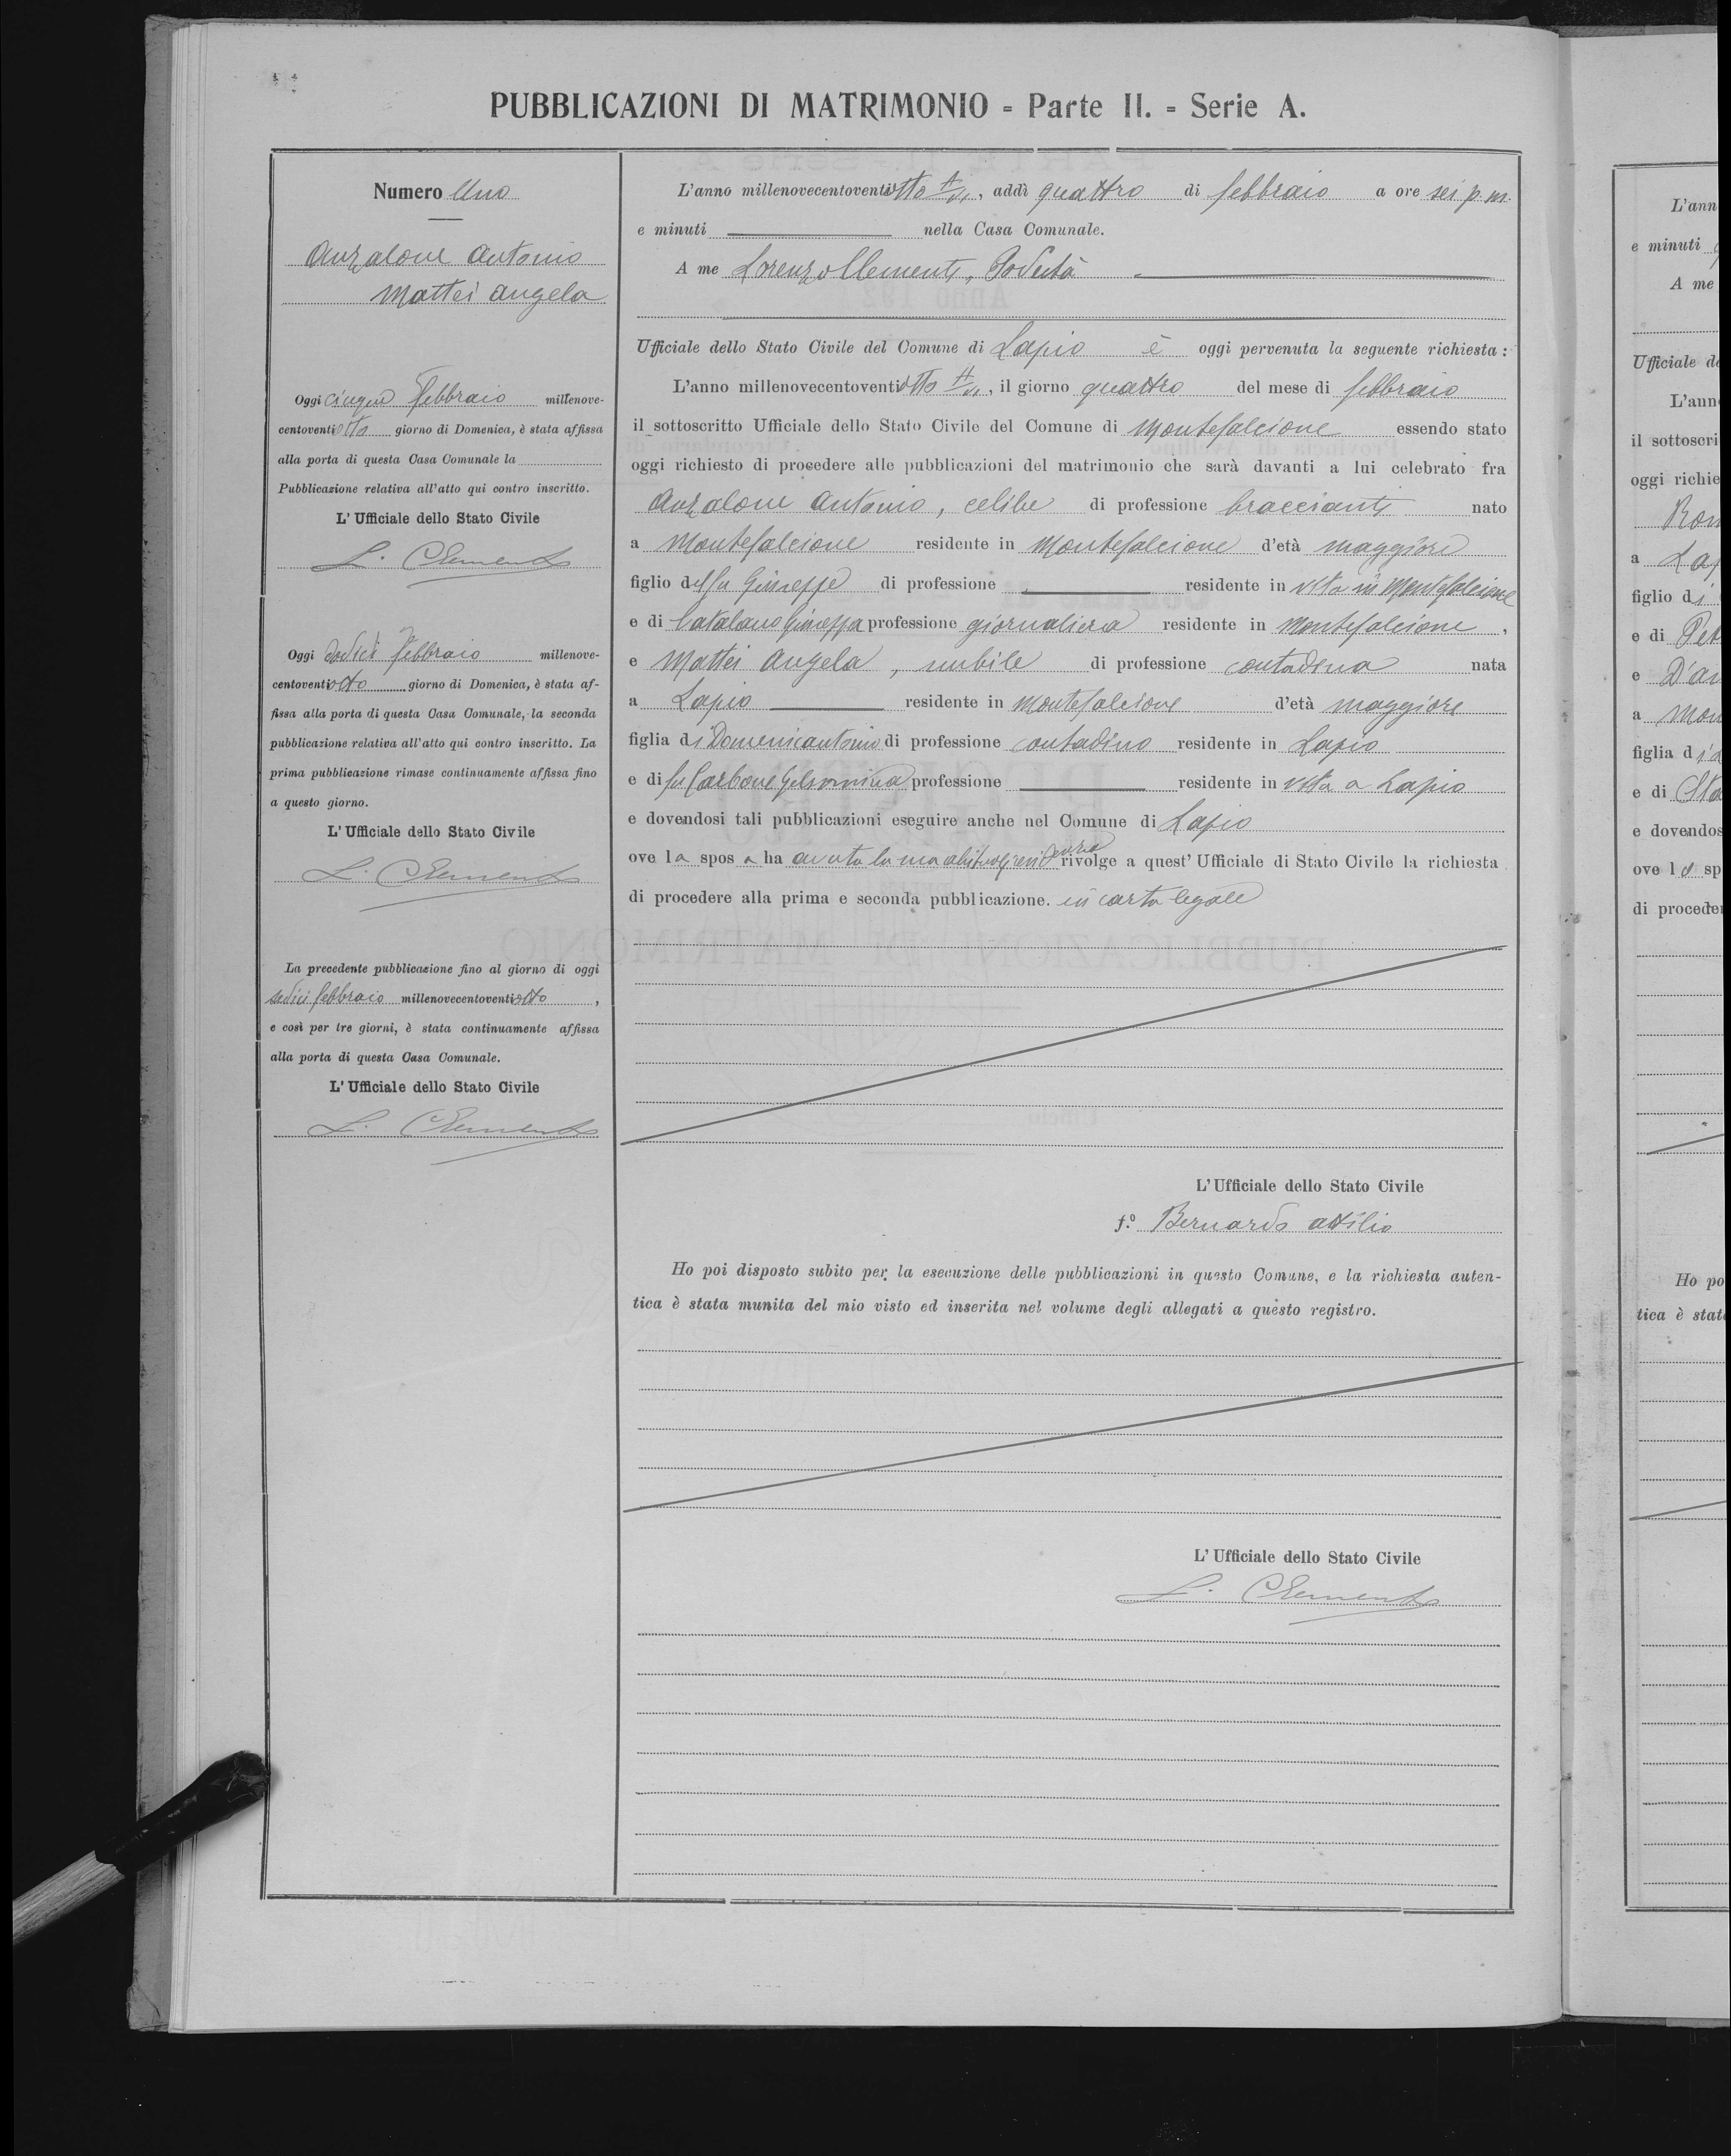 PUBBLICAZIONI DI MATRIMONIO = Parte II. = Serie A.
Numero Uno
Anzalone Antonio
Mattei Angela
Oggi cinque Febbraio millenove-
centoventiotto giorno di Domenica, è stata affissa
alla porta di questa Casa Comunale la
Pubblicazione relativa all'atto qui contro inscritto.
L'Ufficiale dello Stato Civile
L. Clemente
Oggi dodici Febbraio millenove-
centoventiotto giorno di Domenica, è stata af-
fissa alla porta di questa Casa Comunale, la seconda
pubblicazione relativa all'atto qui contro inscritto. La
prima pubblicazione rimase continuamente affissa fino
a questo giorno.
L'Ufficiale dello Stato Civile
L. Clemente
La precedente pubblicazione fino al giorno di oggi
sedici febbraio millenovecentoventiotto,
e così per tre giorni, è stata continuamente affissa
alla porta di questa Casa Comunale.
L'Ufficiale dello Stato Civile
L. Clemente
L'anno millenovecentoventiotto, addì quattro di febbraio a ore sei p.m.
e minuti nella Casa Comunale.
A me Lorenzo Clemente, Podestà
Ufficiale dello Stato Civile del Comune di Lapio è oggi pervenuta la seguente richiesta:
L'anno millenovecentoventiotto, il giorno quattro del mese di febbraio
il sottoscritto Ufficiale dello Stato Civile del Comune di Montefalcione essendo stato
oggi richiesto di procedere alle pubblicazioni del matrimonio che sarà davanti a lui celebrato fra
Anzalone Antonio, celibe di professione bracciante nato
a Montefalcione residente in Montefalcione d'età maggiore
figlio del fu Giuseppe di professione residente in vita in Montefalcione
e di Catalano Giuseppa professione giornaliera residente in Montefalcione,
e Mattei Angela, nubile di professione contadina nata
a Lapio residente in Montefalcione d'età maggiore
figlia di Domenicantonio di professione contadino residente in Lapio
e di fu Carbone Gelsomina professione residente in vita a Lapio
e dovendosi tali pubblicazioni eseguire anche nel Comune di Lapio
ove la sposa ha avuto la sua abituale residenza rivolge a quest'Ufficiale di Stato Civile la richiesta
di procedere alla prima e seconda pubblicazione. in carta legale
L'Ufficiale dello Stato Civile
f.º Bernardo Attilio
Ho poi disposto subito per la esecuzione delle pubblicazioni in questo Comune, e la richiesta auten-
tica è stata munita del mio visto ed inserita nel volume degli allegati a questo registro.
L'Ufficiale dello Stato Civile
L. Clemente
L'ann
e minuti
A me
Ufficiale de
L'ann
il sottoscri
oggi richie
Rom
a Lap
figlio di
e di Pet
e D'an
a Mon
figlia di
e di Sta
e dovendos
ove lo sp
di proceder
Ho po
tica è stat